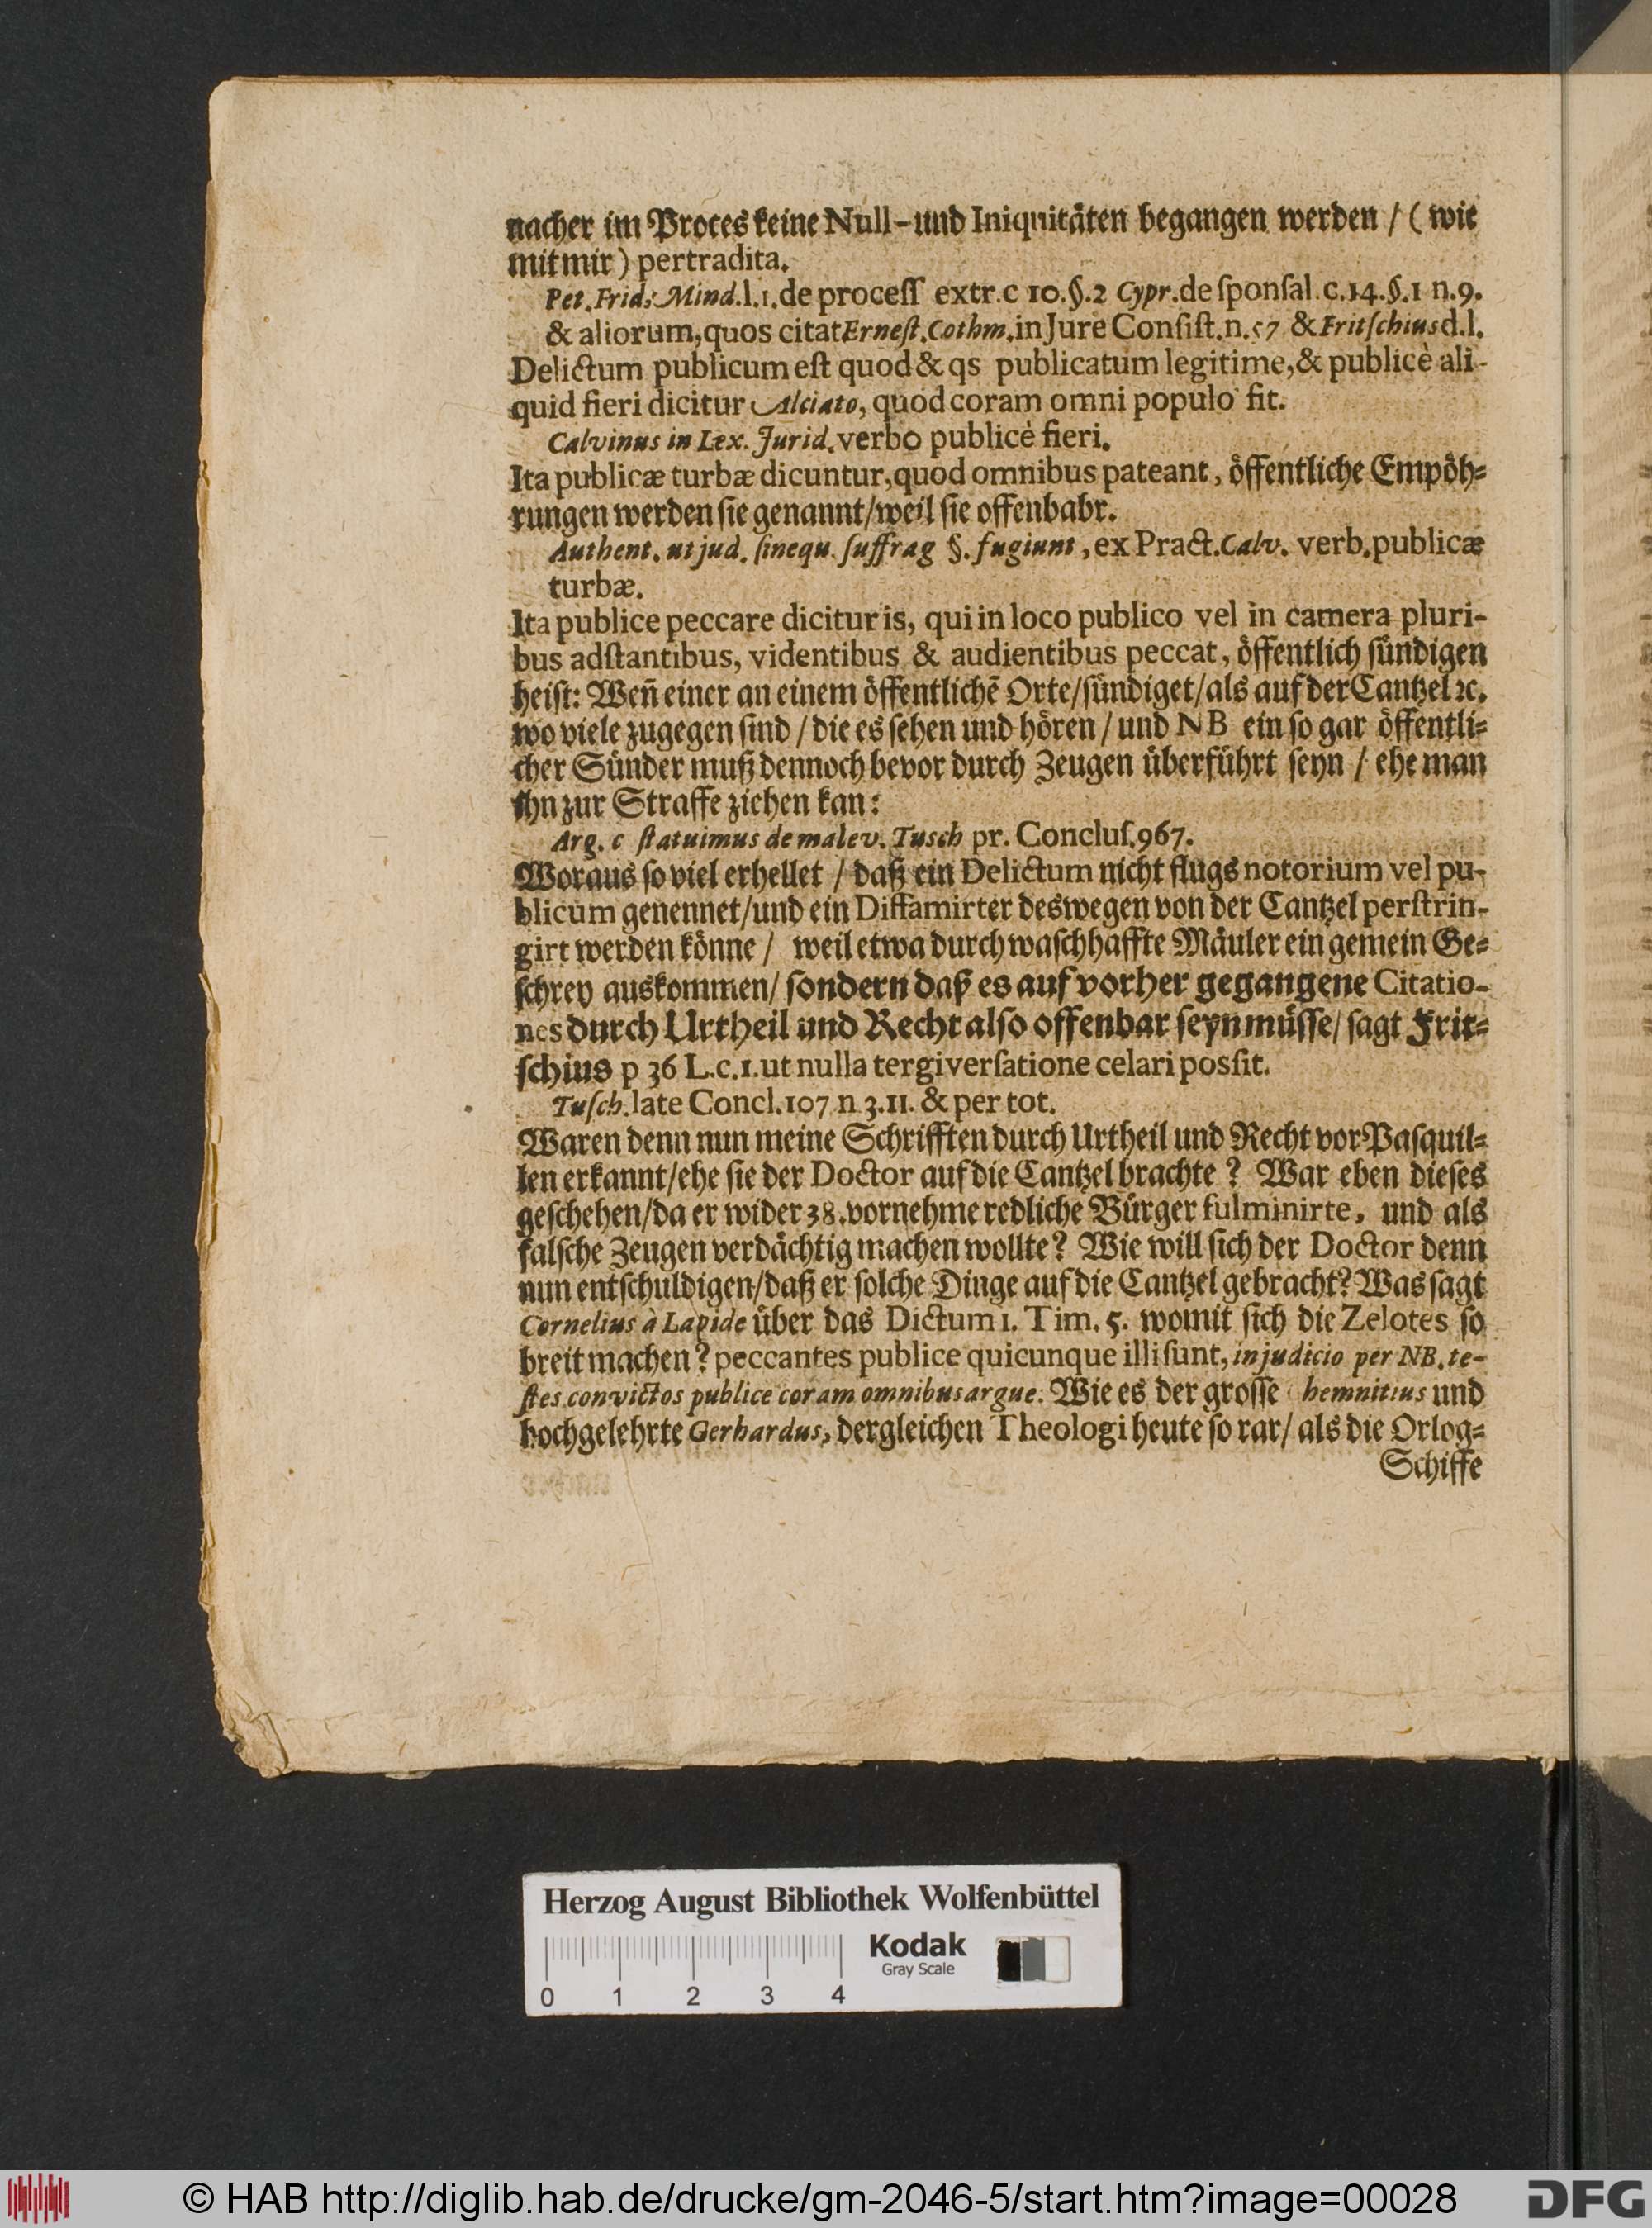 nacher im Proces keine Null-und Iniquitäten begangen werden / ( wie
mit mir ) pertradita.
Pet. Frid. Mind. l. 1. de processſ extr. c 10. §. 2 Cypr. de ſponſal. c. 14. §. 1 n. 9.
& aliorum, quos citat Erneſt. Cothm. in Jure Conſiſt. n. 57 & Fritſchius d. l.
Delictum publicum eſt quod & qs publicatum legitime, & publicè ali-
quid fieri dicitur Alciato, quod coram omni populo fit.
Calvinus in Lex. Jurid. verbo publicè fieri.
Ita publicæ turbæ dicuntur, quod omnibus pateant, öffentliche Empöh-
rungen werden ſie genannt/weil ſie offenbabr.
Authent. ut jud. ſinequ. ſuffrag §. fugiunt, ex Pract. Calv. verb. publicæ
turbæ.
Ita publice peccare dicitur is, qui in loco publico vel in camera pluri-
bus adſtantibus, videntibus & audientibus peccat, öffentlich ſündigen
heiſt: Weñ einer an einem öffentlichē Orte/ſündiget/als auf der Cantzel ꝛc.
wo viele zugegen ſind / die es ſehen und hören / und NB ein ſo gar öffentli-
cher Sünder muß dennoch bevor durch Zeugen überführt ſeyn / ehe man
ihn zur Straffe ziehen kan:
Arg. c ſtatuimus de malev. Tusch pr. Concluſ. 967.
Woraus ſo viel erhellet / daß ein Delictum nicht flugs notorium vel pu-
blicum genennet/und ein Diffamirter deswegen von der Cantzel perſtrin-
girt werden könne / weil etwa durch waſchhaffte Mäuler ein gemein Ge-
ſchrey auskommen/ ſondern daß es auf vorher gegangene Citatio-
nes durch Urtheil und Recht alſo offenbar ſeyn müſſe/ ſagt Frit-
ſchius p 36 L. c. 1. ut nulla tergiverſatione celari poſſit.
Tuſch. late Concl. 107 n 3. 11. & per tot.
Waren denn nun meine Schrifften durch Urtheil und Recht vor Paſquil-
len erkannt/ehe ſie der Doctor auf die Cantzel brachte ? War eben dieſes
geſchehen/da er wider 38. vornehme redliche Bürger fulminirte, und als
falſche Zeugen verdächtig machen wollte? Wie will ſich der Doctor denn
nun entſchuldigen/daß er ſolche Dinge auf die Cantzel gebracht? Was ſagt
Cornelius à Lapide über das Dictum 1. Tim. 5. womit ſich die Zelotes ſo
breit machen ? peccantes publice quicunque illi ſunt, in judicio per NB. te-
ſtes convictos publice coram omnibus argue. Wie es der groſſe hemnitius und
hochgelehrte Gerhardus, dergleichen Theologi heute ſo rar/ als die Orlog-
Schiffe
Herzog August Bibliothek Wolfenbüttel
Kodak
Gray Scale
0 1 2 3 4
© HAB http://diglib.hab.de/drucke/gm-2046-5/start.htm?image=00028
DFG